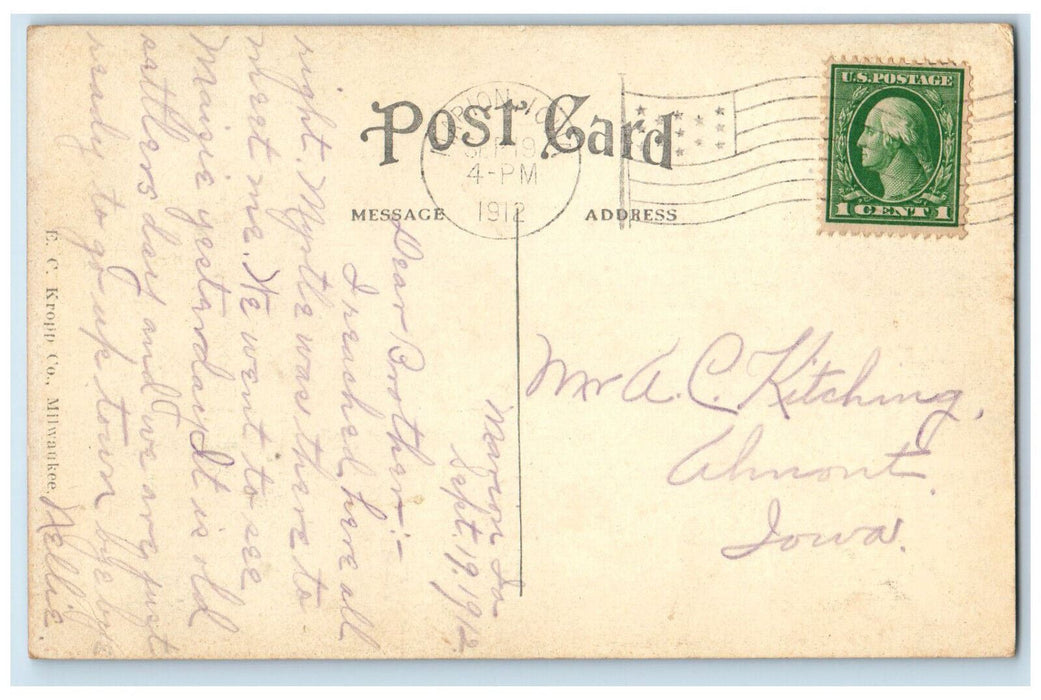 POST CARD
MARION, IOWA
SEP 19
4-PM
1912
U.S. POSTAGE
1 CENT 1
MESSAGE
ADDRESS
Marion Ia
Sept. 19, 1912
Dear Brother:-
I reached here all
right. Myrtle was there to
meet me. We went to see
Maisie yesterday. It is old
settlers day and we are just
ready to go up town bye bye
Nellie.
Mr A. C. Kitching,
Almont
Iowa.
E. C. Kropp Co., Milwaukee.